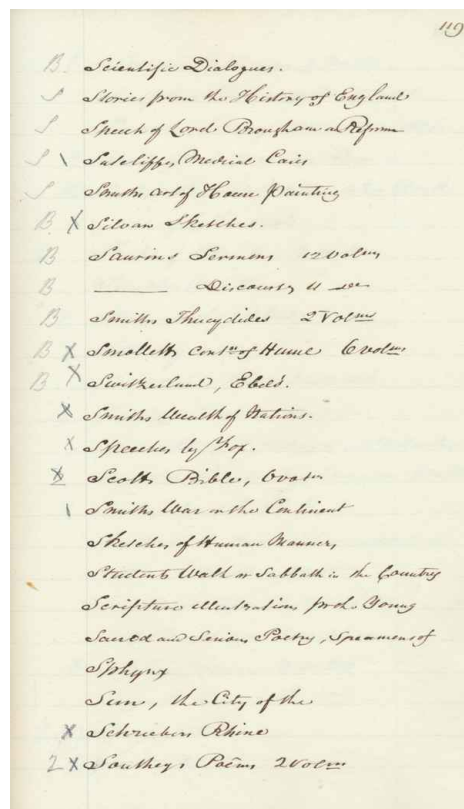 119
B Scientific Dialogues.
S Stories from the History of England
S Speech of Lord Brougham on Reform
S \ Sutcliffes Medical Cases
S Smiths Art of House Painting
B X Silvan Sketches.
B Saurins Sermons 12 Volms
B ——— Discourses 4 do
B Smiths Thucydides 2 Volms
B X Smolletts contn of Hume 6 volms
B X Switzerland, Ebels.
X Smiths Wealth of Nations.
X Speeches by Fox.
X Scotts Bible, 6 vols
\ Smiths War on the Continent
Sketches of Human Manners,
Students Walk or Sabbath in the Country
Scripture illustrations for the Young
Sacred and Serious Poetry, Specimens of
Sphynx
Sun, the City of the
X Schreibers Rhine
2 X Southeys Poems 2 Volms